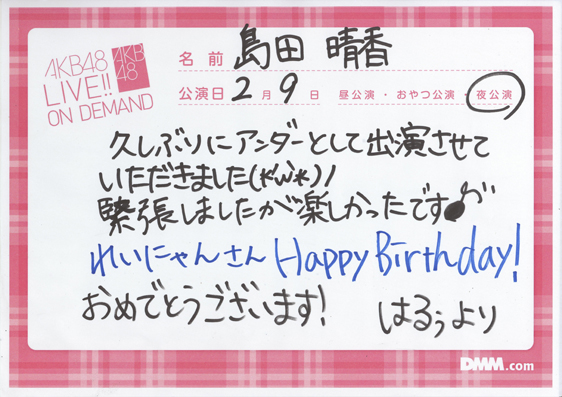 AKB48
LIVE!!
ON DEMAND
AKB
48
名前 島田 晴香
公演日 2月9日 昼公演・おやつ公演・夜公演
久しぶりにアンダーとして出演させて
いただきました(*´ω`*)ノ
緊張しましたが楽しかったです♪
れいにゃんさん Happy Birthday!
おめでとうございます! はるぅより
DMM.com